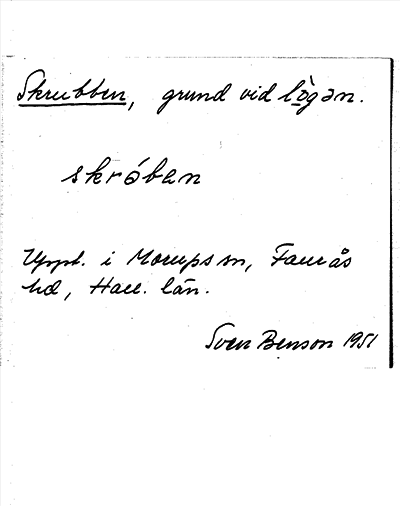 Skrubben, grund vid lògən.
skróban
Uppt. i Morups sn, Faurås
hd, Hall. län.
Sven Benson 1951